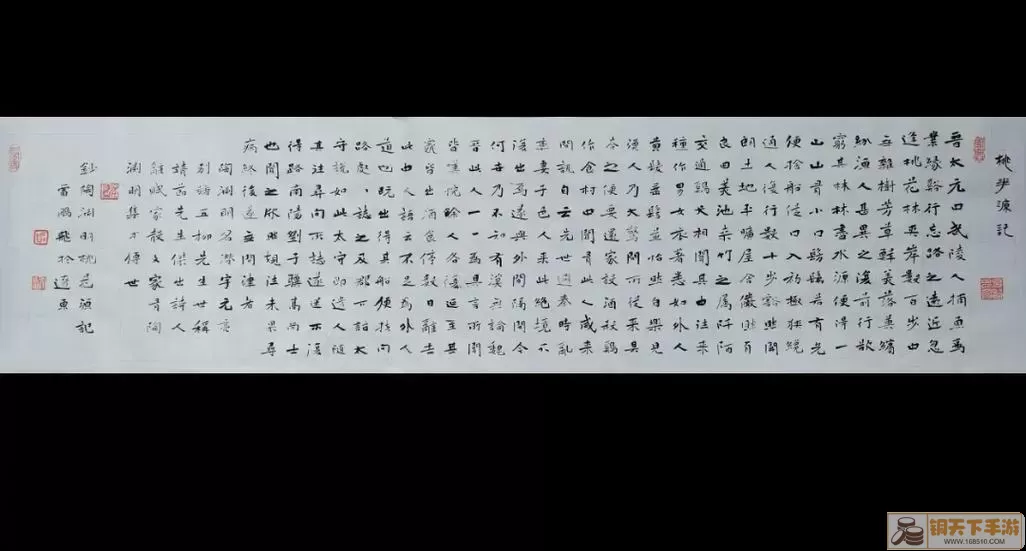 桃花源記
晉太元中武陵人捕魚為
業緣谿行忘路之遠近忽
逢桃花林夾岸數百步中
無雜樹芳草鮮美落英繽
紛漁人甚異之復前行欲
窮其林林盡水源便得一
山山有小口髣髴若有光
便捨船從口入初極狹纔
通人復行數十步豁然開
朗土地平曠屋舍儼然有
良田美池桑竹之屬阡陌
交通鷄犬相聞其中往來
種作男女衣著悉如外人
黄髮垂髫並怡然自樂見
漁人乃大驚問所從來具
答之便要還家設酒殺鷄
作食村中聞有此人咸來
問訊自云先世避秦時亂
率妻子邑人來此絕境不
復出焉遂與外間隔問今
何世乃不知有漢無論魏
晉此人一一為具言所聞
皆歎惋餘人各復延至其
家皆出酒食停數日辭去
此中人語云不足為外人
道也既出得其船便扶向
路處處誌之及郡下詣太
守說如此太守即遣人隨
其往尋向所誌遂迷不復
得路南陽劉子驥高尚士
也聞之欣然規往未果尋
病終後遂無問津者
陶淵明名潛字元亮
別號五柳先生世稱
靖節先生傑出詩人
辭賦家散文家有陶
淵明集傳世
鈔陶淵明桃花源記
雷鵬飛於
铜天下手游
www.168510.com